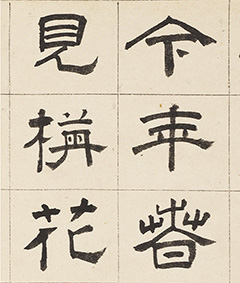 今年春
見梅花